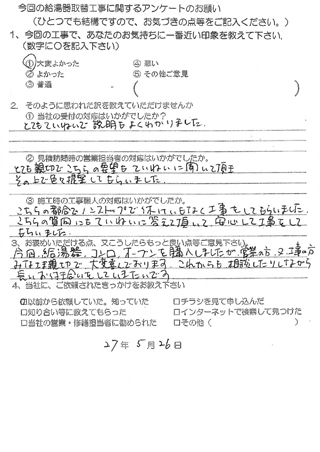 今回の給湯器取替工事に関するアンケートのお願い
（ひとつでも結構ですので、お気づきの点等をご記入ください。）
1、今回の工事で、あなたのお気持ちに一番近い印象を教えて下さい。
（数字に○を記入下さい）
①大変よかった ④悪い
②よかった ⑤その他ご意見
③普通 （ ）
2．そのように思われた訳を教えていただけませんか
①当社の受付の対応はいかがでしたか？
とてもていねいで説明もよくわかりました。
②見積訪問時の営業担当者の対応はいかがでしたか。
とても親切でこちらの要望もていねいに聞いて頂き
その上で色々提案してもらいました。
③施工時の工事職人の対応はいかがでしたか。
こちらの都合でノンストップで工事をしてもらいました。
こちらの質問にもていねいに答えて頂いて、安心して工事をして
もらいました。
3．お褒めいただける点、又こうしたらもっと良い点等ご意見下さい。
今回、給湯器、コンロ、オーブンを購入しましたが営業の方、又工事の方
みなさま親切で、大変喜んでおります。これからも相談したりしながら
長いお付き合いをしていきたいです。
4、当社に、ご依頼されたきっかけをお教え下さい
☑以前から依頼していた。知っていた □チラシを見て申し込んだ
□知り合い等に教えてもらった □インターネットで検索して見つけた
□当社の営業・修繕担当者に勧められた □その他（ ）
27年 5月 26日